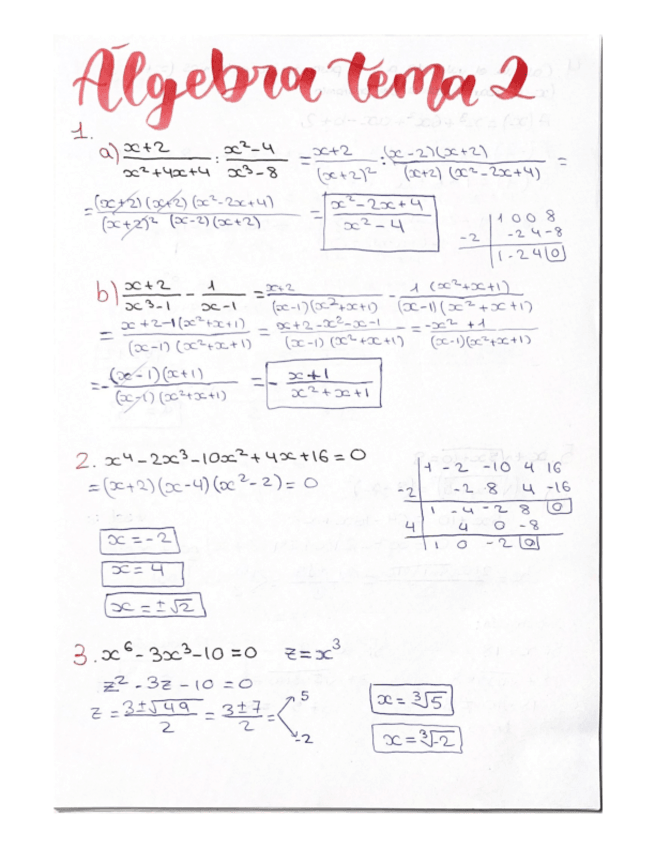 Álgebra tema 2
1.
a) (x+2)/(x²+4x+4) : (x²-4)/(x³-8) = (x+2)/((x+2)²) : ((x-2)(x+2))/((x+2)(x²-2x+4)) =
= ((x+2)(x+2)(x²-2x+4))/((x+2)²(x-2)(x+2)) = (x²-2x+4)/(x²-4)
1 0 0 8
-2 | -2 4 -8
1 -2 4 0
b) (x+2)/(x³-1) - 1/(x-1) = (x+2)/((x-1)(x²+x+1)) - (1(x²+x+1))/((x-1)(x²+x+1))
= (x+2-1(x²+x+1))/((x-1)(x²+x+1)) = (x+2-x²-x-1)/((x-1)(x²+x+1)) = (-x²+1)/((x-1)(x²+x+1))
= -((x-1)(x+1))/((x-1)(x²+x+1)) = -(x+1)/(x²+x+1)
2. x⁴-2x³-10x²+4x+16=0
= (x+2)(x-4)(x²-2)=0
1 -2 -10 4 16
-2 | -2 8 4 -16
1 -4 -2 8 0
4 | 4 0 -8
1 0 -2 0
x=-2
x=4
x=±√2
3. x⁶-3x³-10=0 z=x³
z²-3z-10=0
z = (3±√49)/2 = (3±7)/2 = 5
-2
x=∛5
x=∛-2